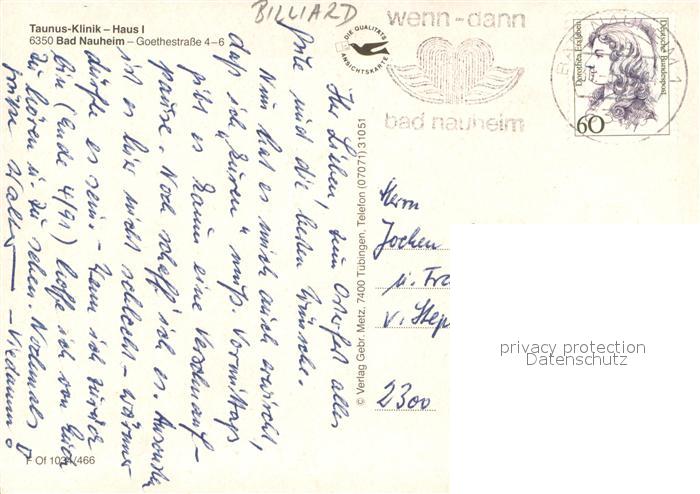 BILLIARD
Taunus-Klinik – Haus I
6350 Bad Nauheim – Goethestraße 4–6
DIE QUALITÄTS
ANSICHTSKARTE
wenn-dann
bad nauheim
Dorothea Erxleben
Deutsche Bundespost
60
Ihr Lieben, zum Osterfest alles
Gute und die besten Wünsche.
Nun hat es mich auch erwischt,
daß ich "kuren" muß. Vormittags
gibt es kaum eine Verschnauf-
pause. Noch schaff ich es. Ansonsten
ist es hier nicht schlecht – wärmer
dürfte es sein. – Wenn ich zurück
bin (Ende 4/91) hoffe ich von Euch
zu hören u. zu sehen. Nochmals
Walter
© Verlag Gebr. Metz, 7400 Tübingen, Telefon (07071) 31051
Herrn
Jochen
u. Fra
v. Step
2300
F Of 1031/466
privacy protection
Datenschutz